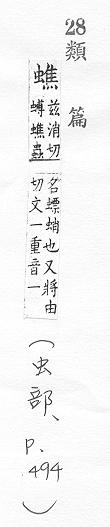 28類篇
蟭
茲消切
蟳蟭蟲
名螵蛸也又將由
切文一重音一
(虫部、p. 494)